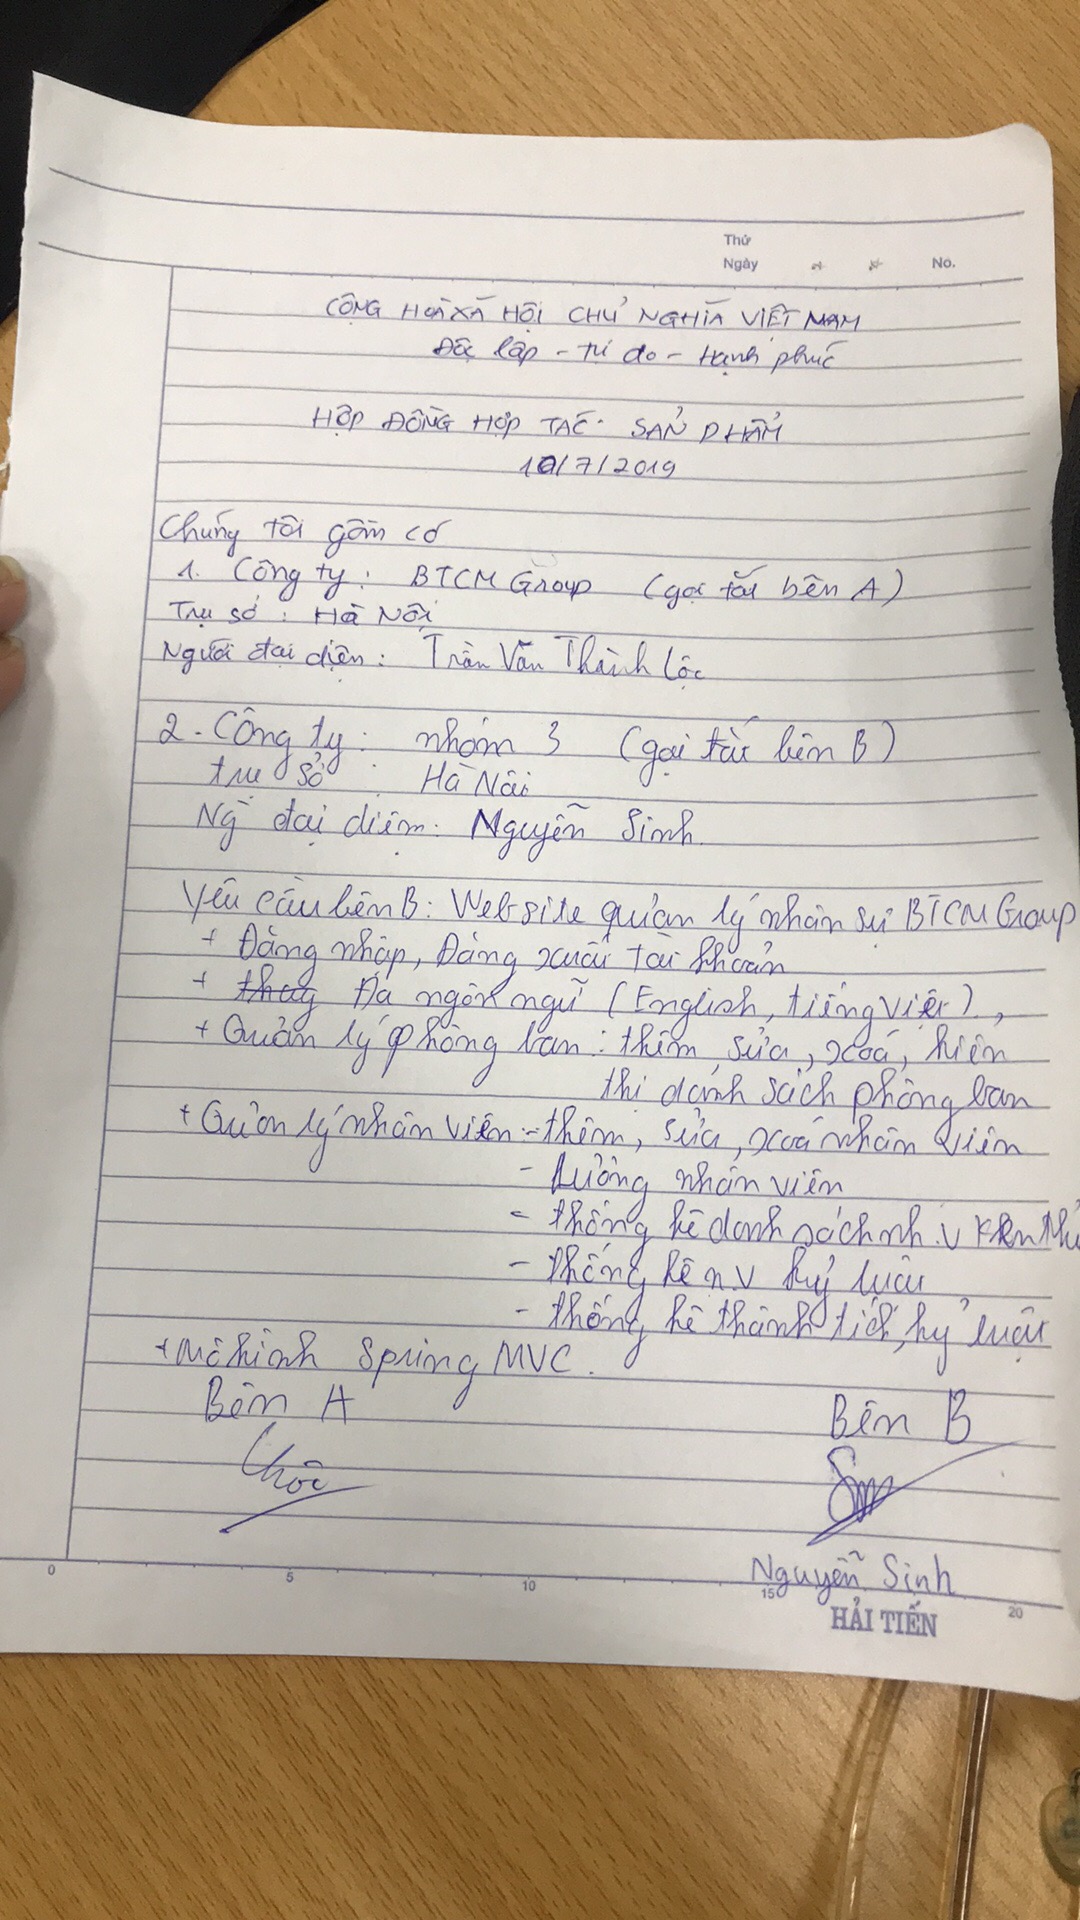 Thứ
Ngày No.
CỘNG HOÀ XÃ HỘI CHỦ NGHĨA VIỆT NAM
Độc lập - Tự do - Hạnh phúc
HỢP ĐỒNG HỢP TÁC SẢN PHẨM
10/7/2019
Chúng tôi gồm có
1. Công ty: BTCM Group (gọi tắt bên A)
Trụ sở: Hà Nội
Người đại diện: Trần Văn Thành Lộc
2. Công ty: nhóm 3 (gọi tắt bên B)
trụ sở : Hà Nội
Ng` đại diện: Nguyễn Sinh
Yêu cầu bên B: Website quản lý nhân sự BTCM Group
+ Đăng nhập, Đăng xuất tài khoản
+ thay Đa ngôn ngữ (English, tiếng việt),
+ Quản lý phòng ban: thêm, sửa, xoá, hiển
thị danh sách phòng ban
+ Quản lý nhân viên: - thêm, sửa, xoá nhân viên
- Lương nhân viên
- thống kê danh sách nh.v
- thống kê n.v kỷ luật
- thống kê thành tích, kỷ luật
+ Mô hình Spring MVC.
Bên A Bên B
Nguyễn Sinh
0 5 10 15 20
HẢI TIẾN